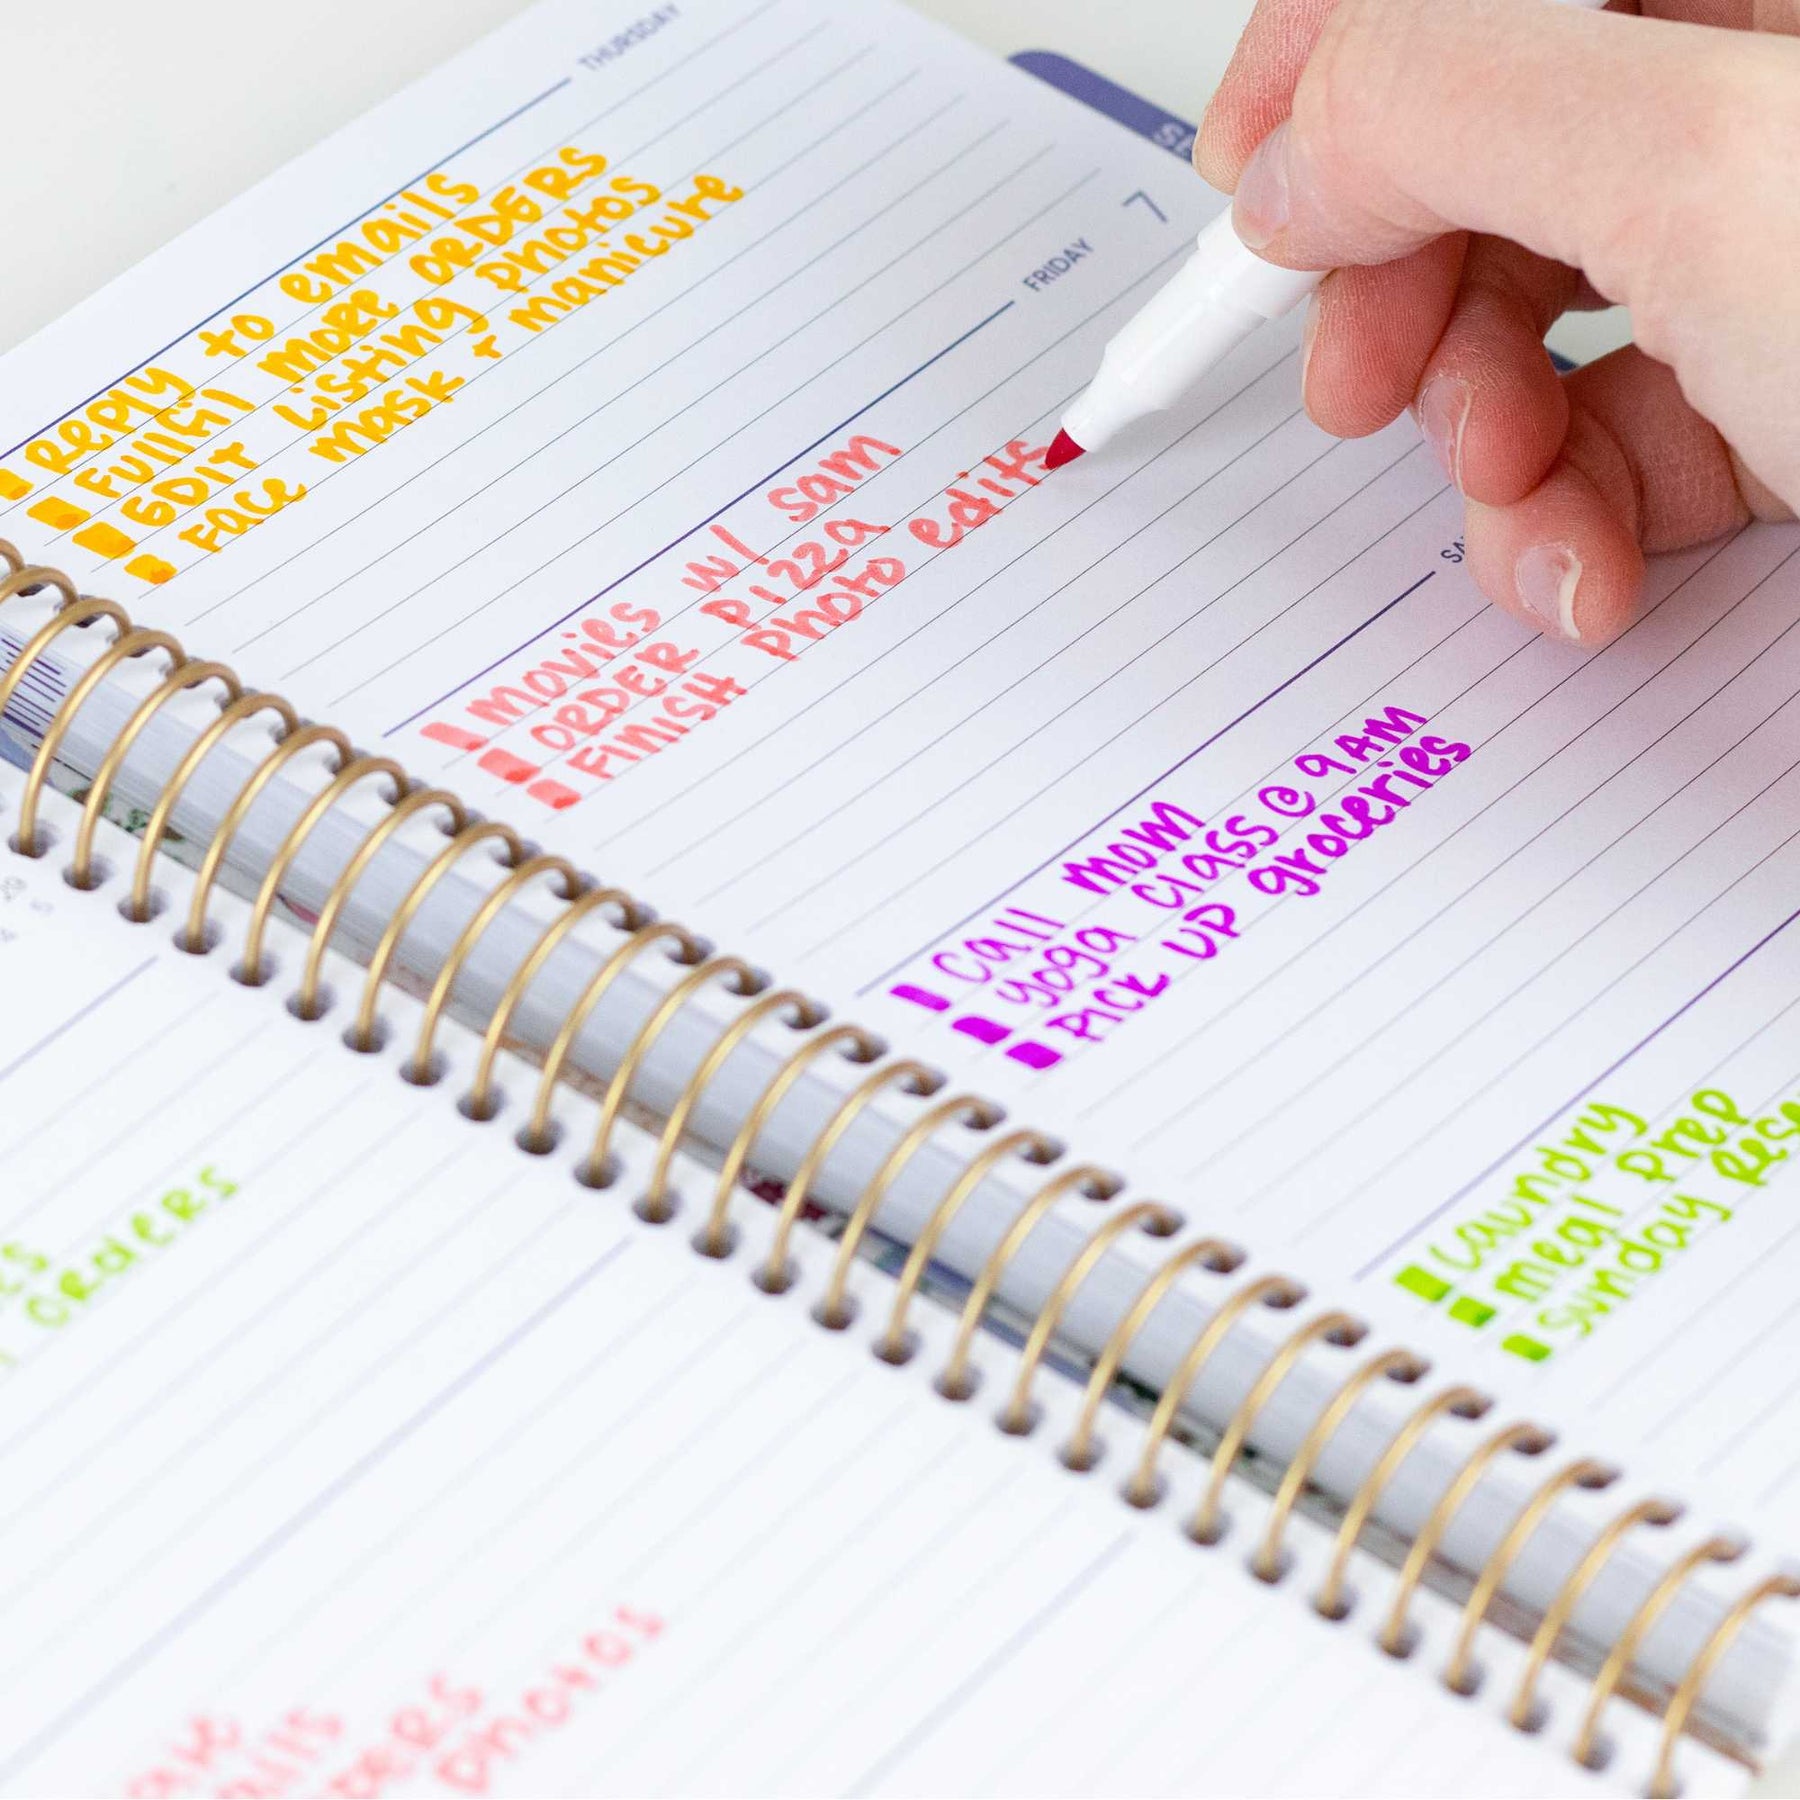 THURSDAY
REPLY to emails
FULLFil more ORDERS
EDIT Listing photos
Face mask + manicure
7
FRIDAY
movies w/ sam
ORDER pizza
FINISH photo edits
Call mom
yoga class @ 9AM
PICK UP groceries
Laundry
meal prep
Sunday
orders
photos